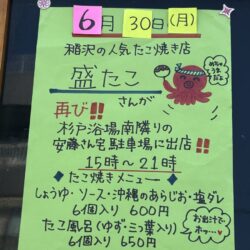 6月30日(月)
稲沢の人気たこ焼き店
盛たこ
さんが
再び!!
杉戸浴場,南隣りの
安藤さん宅駐車場に出店!!
15時〜21時
たこ焼きメニュー
しょうゆ・ソース・沖縄のあらじお・塩ダレ
6個入り 600円
たこ風呂(ゆず・三つ葉入り)
6個入り 650円
お出汁で
ホッ…♥